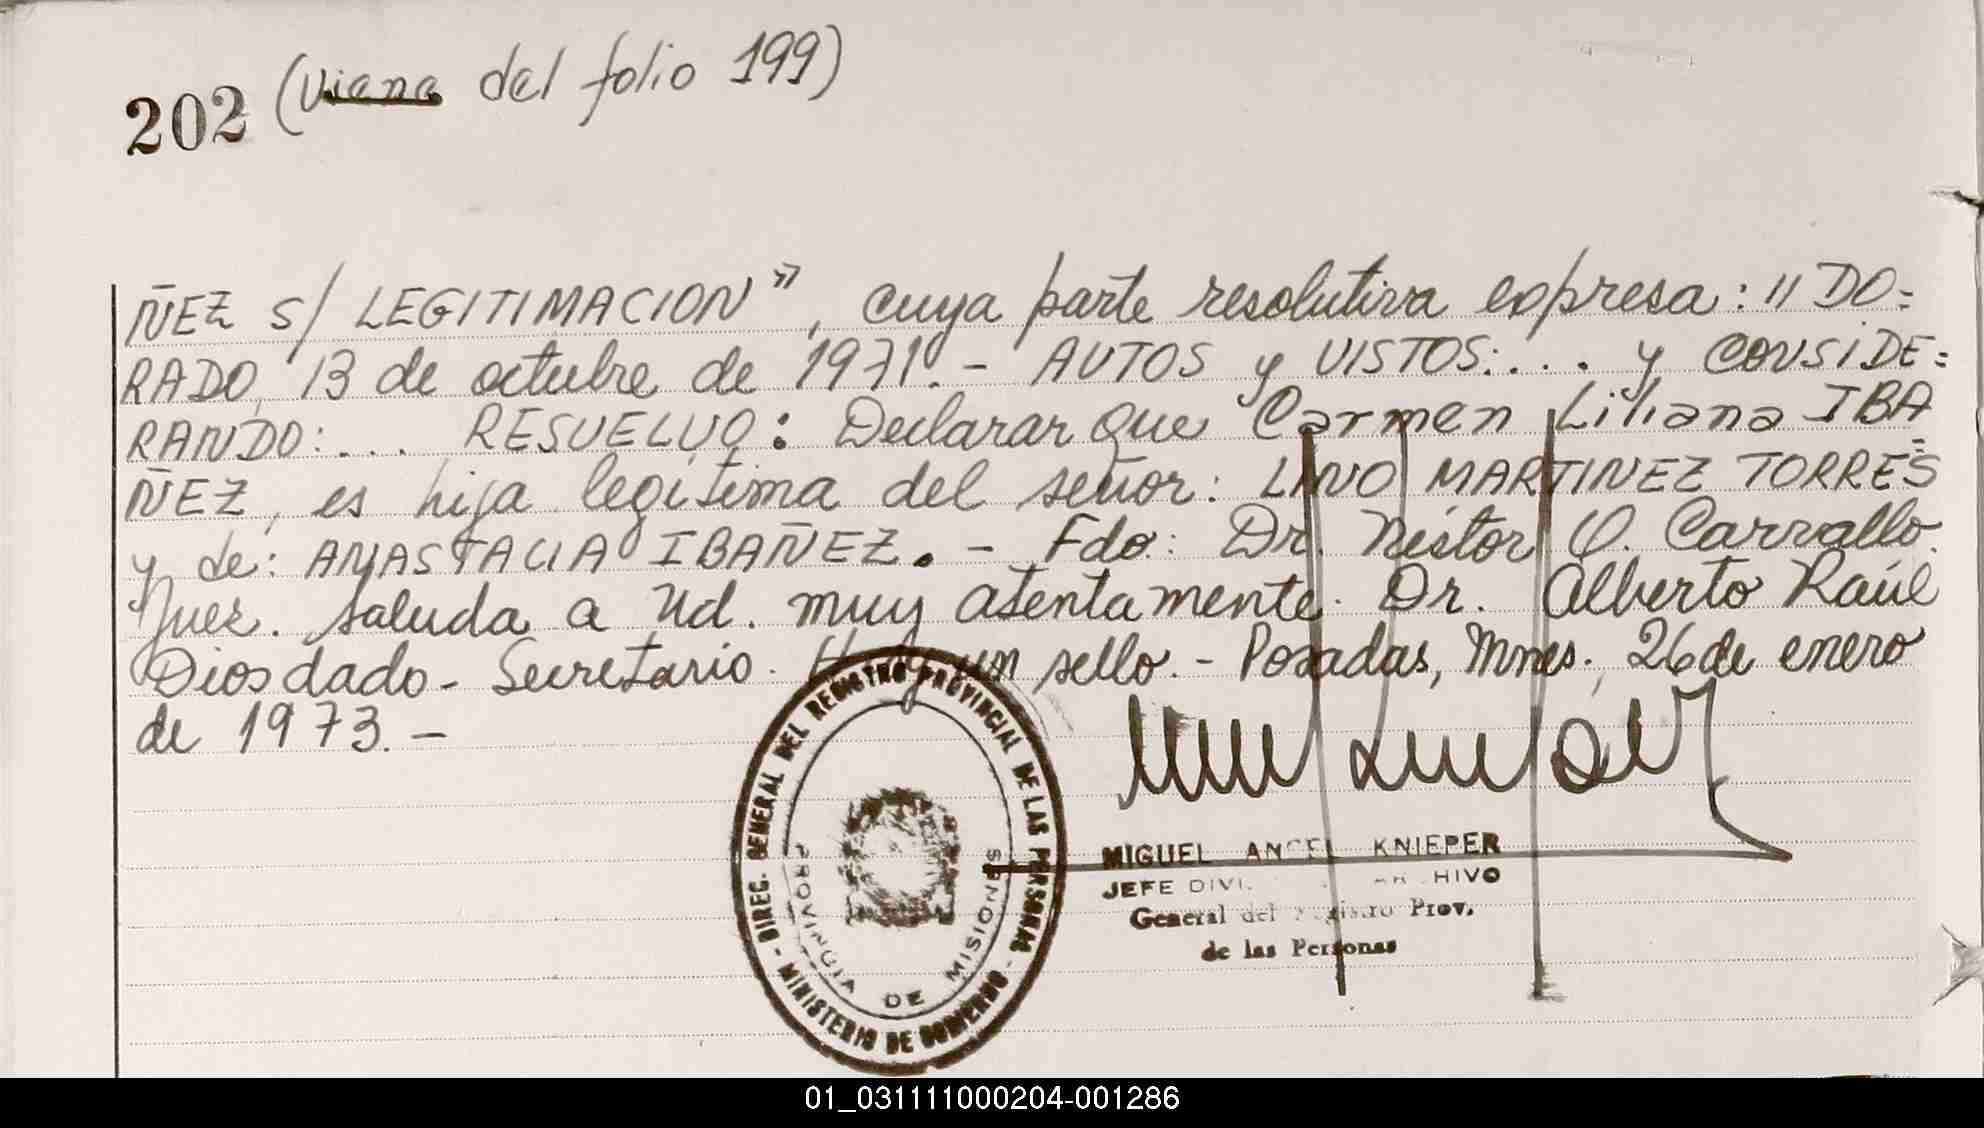 202 (Viene del folio 199)
ÑEZ S/ LEGITIMACION", cuya parte resolutiva expresa: "DO=
RADO, 13 de octubre de 1971.- AUTOS y VISTOS:... y CONSIDE=
RANDO:... RESUELVO: Declarar que Carmen Liliana IBA
ÑEZ, es hija legítima del señor: LINO MARTINEZ TORRES
y de: ANASTACIA IBAÑEZ.- Fdo: Dr. Néstor O. Carvallo.
Juez. Saluda a Ud. muy atentamente. Dr. Alberto Raúl
Diosdado - Secretario. Hay un sello.- Posadas, Mnes., 26 de enero
de 1973.-
DIREC. GENERAL DEL REGISTRO PROVINCIAL DE LAS PERSONAS
- MINISTERIO DE GOBIERNO -
PROVINCIA DE MISIONES
MIGUEL ANGEL KNIEPER
JEFE DIVI. ARCHIVO
General del Registro Prov.
de las Personas
01_031111000204-001286